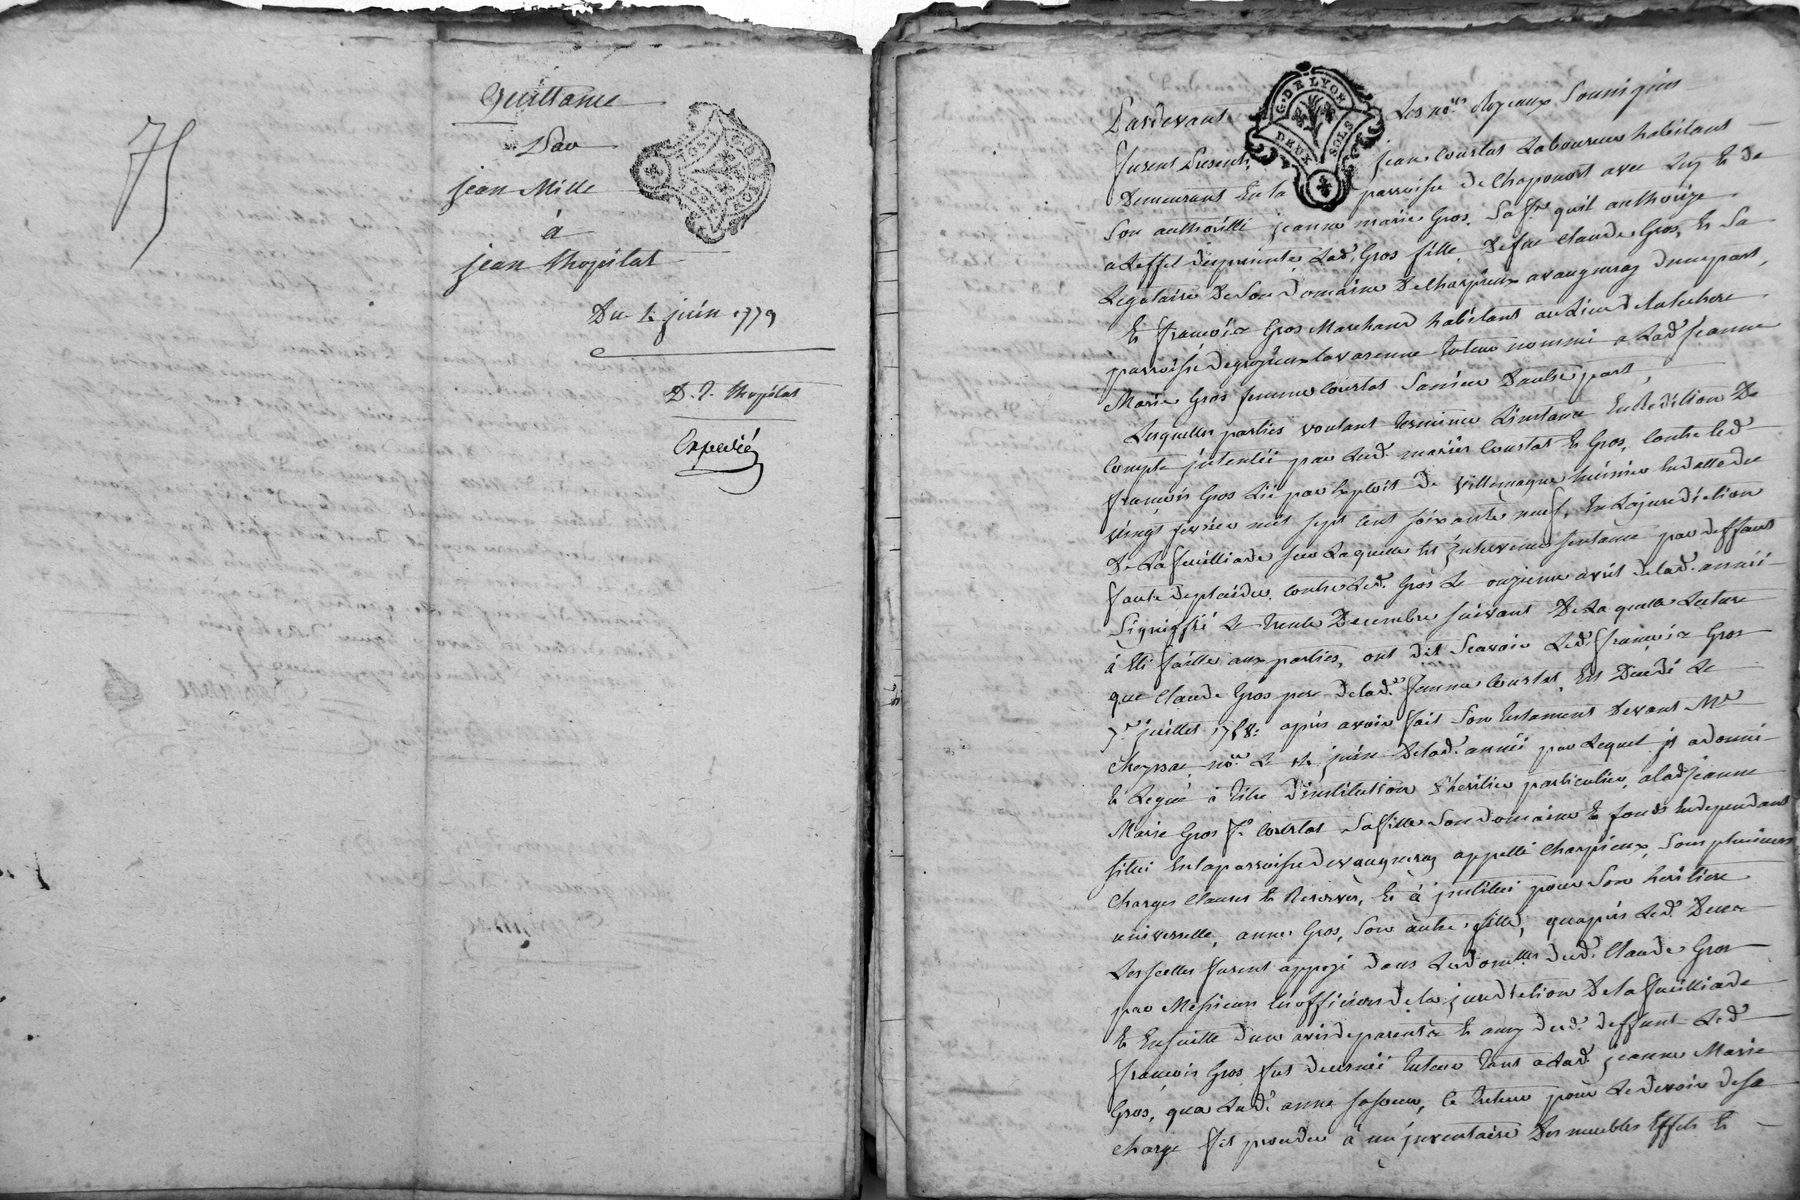 75
Quittance
Par
jean Mille
à
jean Thopilat
Du 1er juin 1779
D. J. Thopilat
Expedié
G. DE LYON
DEUX SOLS
Pardevant Les no.res Royaux Soussignes
furent Presents jean Courtat Laboureur habitant
Demeurant En la parroisse de Chaponost avec Luy Et De
Son authoritté jeanne marie Gros Sa fe. quil authorize
a Leffet des presentes Lad. Gros fille De feu Claude Gros, Et Sa
Legataire De Son Domaine De Charpieux a vaugneray Dune part,
Et francois Gros Marchand habitant au Lieu de
parroisse de grezieu La varenne tuteur nommé a Lad jeanne
Marie Gros femme Courtat Danieu Dautre part,
Lesquelles parties voulant terminer Linstance En Redition De
Compte jntentée par Lesd. mariés Courtat Et Gros, Contre Led
francois Gros Lié par Exploit De Villemagne huissier En datte du
vingt fevrier mil sept Cent soixante neuf, En La jurediction
De La feuilliade sur Laquelle Est jntervenu sentence par deffaut
faute de plaider Contre Led. Gros Le onzieme avril De lad. année
Signiffié Le trente Decembre suivant De La quelle Lecture
à Eté faitte aux parties, ont dit Scavoir Led. francois Gros
que Claude Gros pere de lad. femme Courtat Est Decedé Le
7e juillet 1758: après avoir fait Son testament Devant Me
Cheyssac no.re Le juin De lad. année par Lequel jl a donné
Et Legué à titre d'institution d'heritier particulier, a lad jeanne
Marie Gros fe. Courtat Sa fille Son domaine Et fonds En dependant
situé En la parroisse de vaugneray appellé Charpieux Sous plusieurs
Charges Clauses Et Reserves, Et à jnstitué pour Son heritiere
universelle, anne Gros, Son autre fille; qu'après Led. Decès
Les scellés furent apposé dans Les dom.lles dud. Claude Gros
par Messieurs Les officiers De La jurediction De La feuilliade
Et Ensuitte dun avis de parents Et amy dud. deffunt Led
francois Gros fut decerné tuteur tant a Lad. jeanne Marie
Gros, qua Lad. anne sa soeur, Ce tuteur pour Le devoir de sa
Charge fit proceder à un jnventaire Des meubles Effets Et